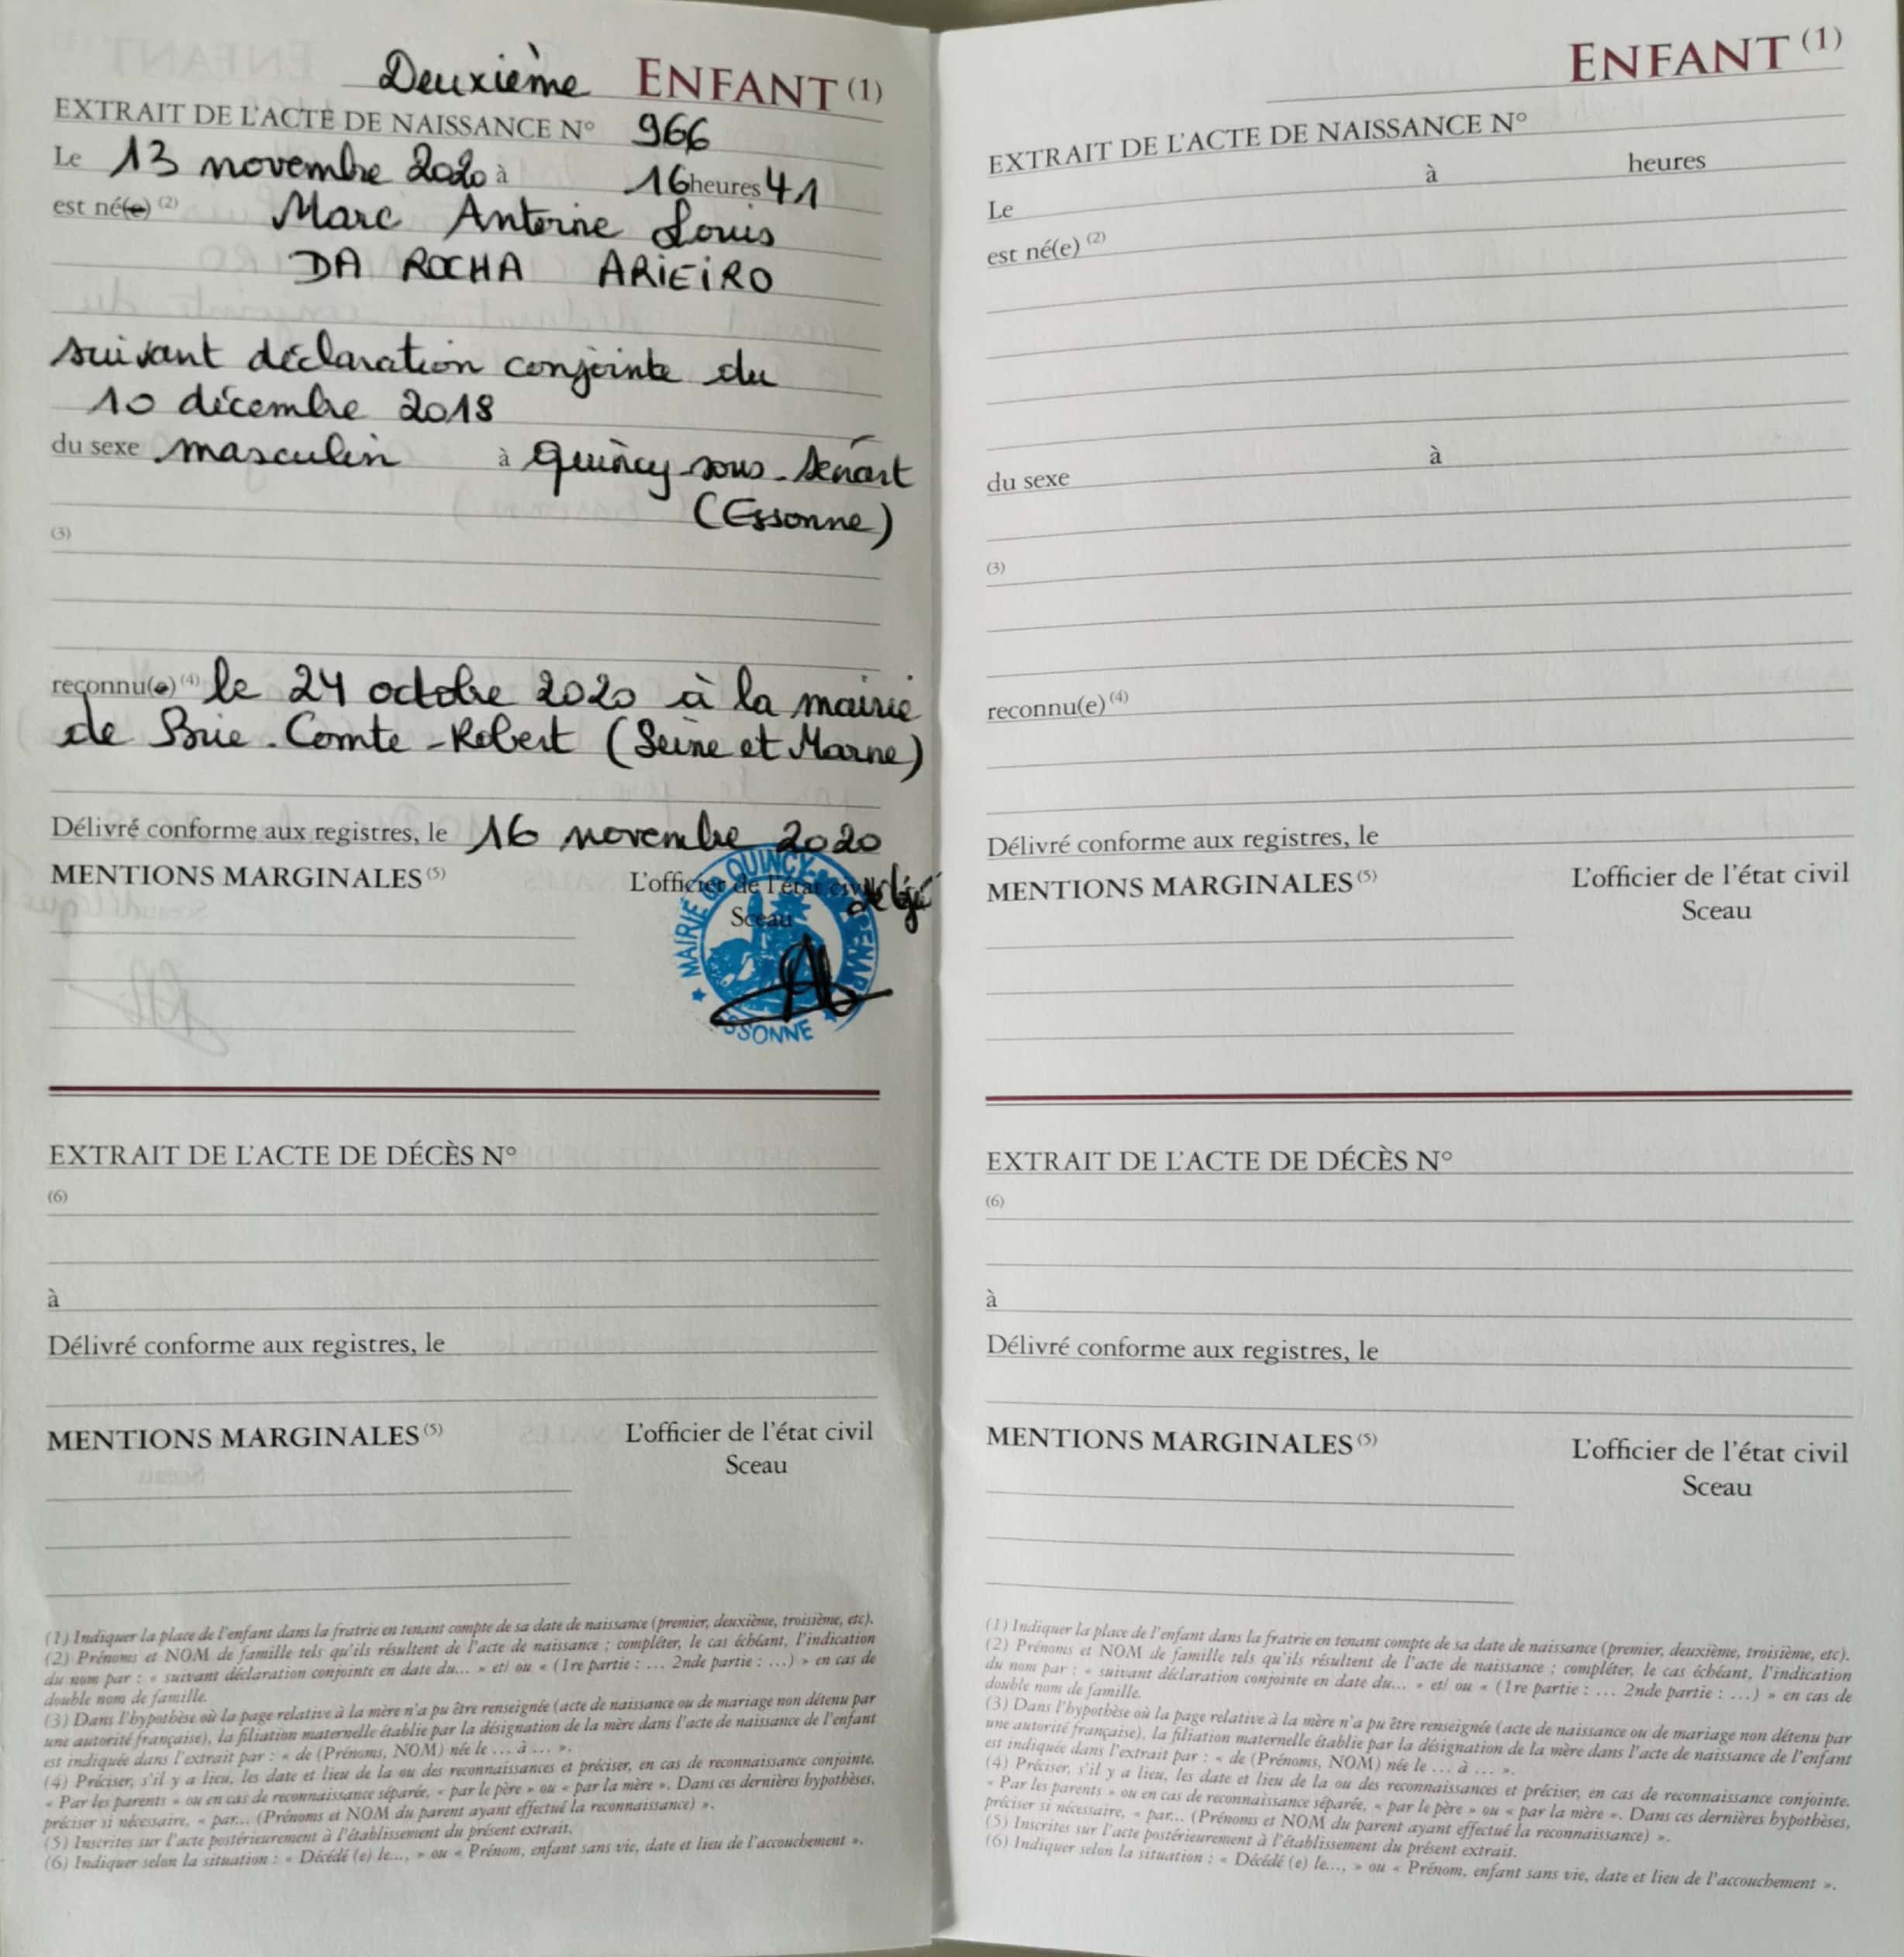 Deuxième ENFANT (1)
EXTRAIT DE L'ACTE DE NAISSANCE N° 966
Le 13 novembre 2020 à 16 heures 41
est né(e) (2) Marc Antoine Louis
DA ROCHA ARIEIRO
suivant déclaration conjointe du
10 décembre 2018
du sexe masculin à Quincy-sous-Sénart
(Essonne)
(3)
reconnu(e) (4) le 24 octobre 2020 à la mairie
de Brie-Comte-Robert (Seine et Marne)
Délivré conforme aux registres, le 16 novembre 2020
MENTIONS MARGINALES (5) L'officier de l'état civil
Sceau
MAIRIE DE QUINCY SENART
ESSONNE
EXTRAIT DE L'ACTE DE DÉCÈS N°
(6)
à
Délivré conforme aux registres, le
MENTIONS MARGINALES (5) L'officier de l'état civil
Sceau
(1) Indiquer la place de l'enfant dans la fratrie en tenant compte de sa date de naissance (premier, deuxième, troisième, etc).
(2) Prénoms et NOM de famille tels qu'ils résultent de l'acte de naissance ; compléter, le cas échéant, l'indication
du nom par : « suivant déclaration conjointe en date du... » et/ ou « (1re partie : ... 2nde partie : ...) » en cas de
double nom de famille.
(3) Dans l'hypothèse où la page relative à la mère n'a pu être renseignée (acte de naissance ou de mariage non détenu par
une autorité française), la filiation maternelle établie par la désignation de la mère dans l'acte de naissance de l'enfant
est indiquée dans l'extrait par : « de (Prénoms, NOM) née le ... à ... ».
(4) Préciser, s'il y a lieu, les date et lieu de la ou des reconnaissances et préciser, en cas de reconnaissance conjointe,
« Par les parents » ou en cas de reconnaissance séparée, « par le père » ou « par la mère ». Dans ces dernières hypothèses,
préciser si nécessaire, « par... (Prénoms et NOM du parent ayant effectué la reconnaissance) ».
(5) Inscrites sur l'acte postérieurement à l'établissement du présent extrait.
(6) Indiquer selon la situation : « Décédé (e) le..., » ou « Prénom, enfant sans vie, date et lieu de l'accouchement ».
ENFANT (1)
EXTRAIT DE L'ACTE DE NAISSANCE N°
Le à heures
est né(e) (2)
du sexe à
(3)
reconnu(e) (4)
Délivré conforme aux registres, le
MENTIONS MARGINALES (5) L'officier de l'état civil
Sceau
EXTRAIT DE L'ACTE DE DÉCÈS N°
(6)
à
Délivré conforme aux registres, le
MENTIONS MARGINALES (5) L'officier de l'état civil
Sceau
(1) Indiquer la place de l'enfant dans la fratrie en tenant compte de sa date de naissance (premier, deuxième, troisième, etc).
(2) Prénoms et NOM de famille tels qu'ils résultent de l'acte de naissance ; compléter, le cas échéant, l'indication
du nom par : « suivant déclaration conjointe en date du... » et/ ou « (1re partie : ... 2nde partie : ...) » en cas de
double nom de famille.
(3) Dans l'hypothèse où la page relative à la mère n'a pu être renseignée (acte de naissance ou de mariage non détenu par
une autorité française), la filiation maternelle établie par la désignation de la mère dans l'acte de naissance de l'enfant
est indiquée dans l'extrait par : « de (Prénoms, NOM) née le ... à ... ».
(4) Préciser, s'il y a lieu, les date et lieu de la ou des reconnaissances et préciser, en cas de reconnaissance conjointe.
« Par les parents » ou en cas de reconnaissance séparée, « par le père » ou « par la mère ». Dans ces dernières hypothèses,
préciser si nécessaire, « par... (Prénoms et NOM du parent ayant effectué la reconnaissance) ».
(5) Inscrites sur l'acte postérieurement à l'établissement du présent extrait.
(6) Indiquer selon la situation : « Décédé (e) le..., » ou « Prénom, enfant sans vie, date et lieu de l'accouchement ».